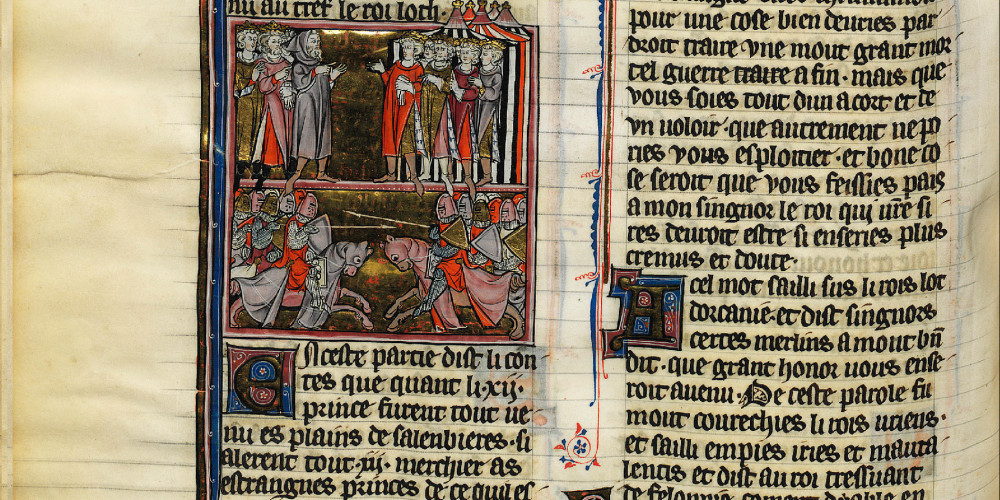 nu au tref le roi loth·
En ceste partie dist li con
tes que quant li·xij·
prince furent tout ve
nu es plains de salenbieres· si
alerent tout·iij· merchier as
estrangues princes de ce quil es
pour une cose bien deuries par
droit traire vne mout grant mor
tel guerre traire a fin· mais que
vous soies tout dun acort et de
vn uoloir· que autrement ne po
ries vous esploitier· et bone co
se seroit que vous feissies pais
a mon singnor le roi qui ure si
res deuroit estre si enseries plus
cremus et doute·
A cel mot sailli sus li rois lot
dorcanie· et dist singnors
certes merlins a mout bn
dit· que grant honor uous en se
roit auenu· De ceste parole fu
mout courechies li rois uriens·
et sailli empies iries et mauta
lentis et dist au roi tressuant
de felounie coment deable